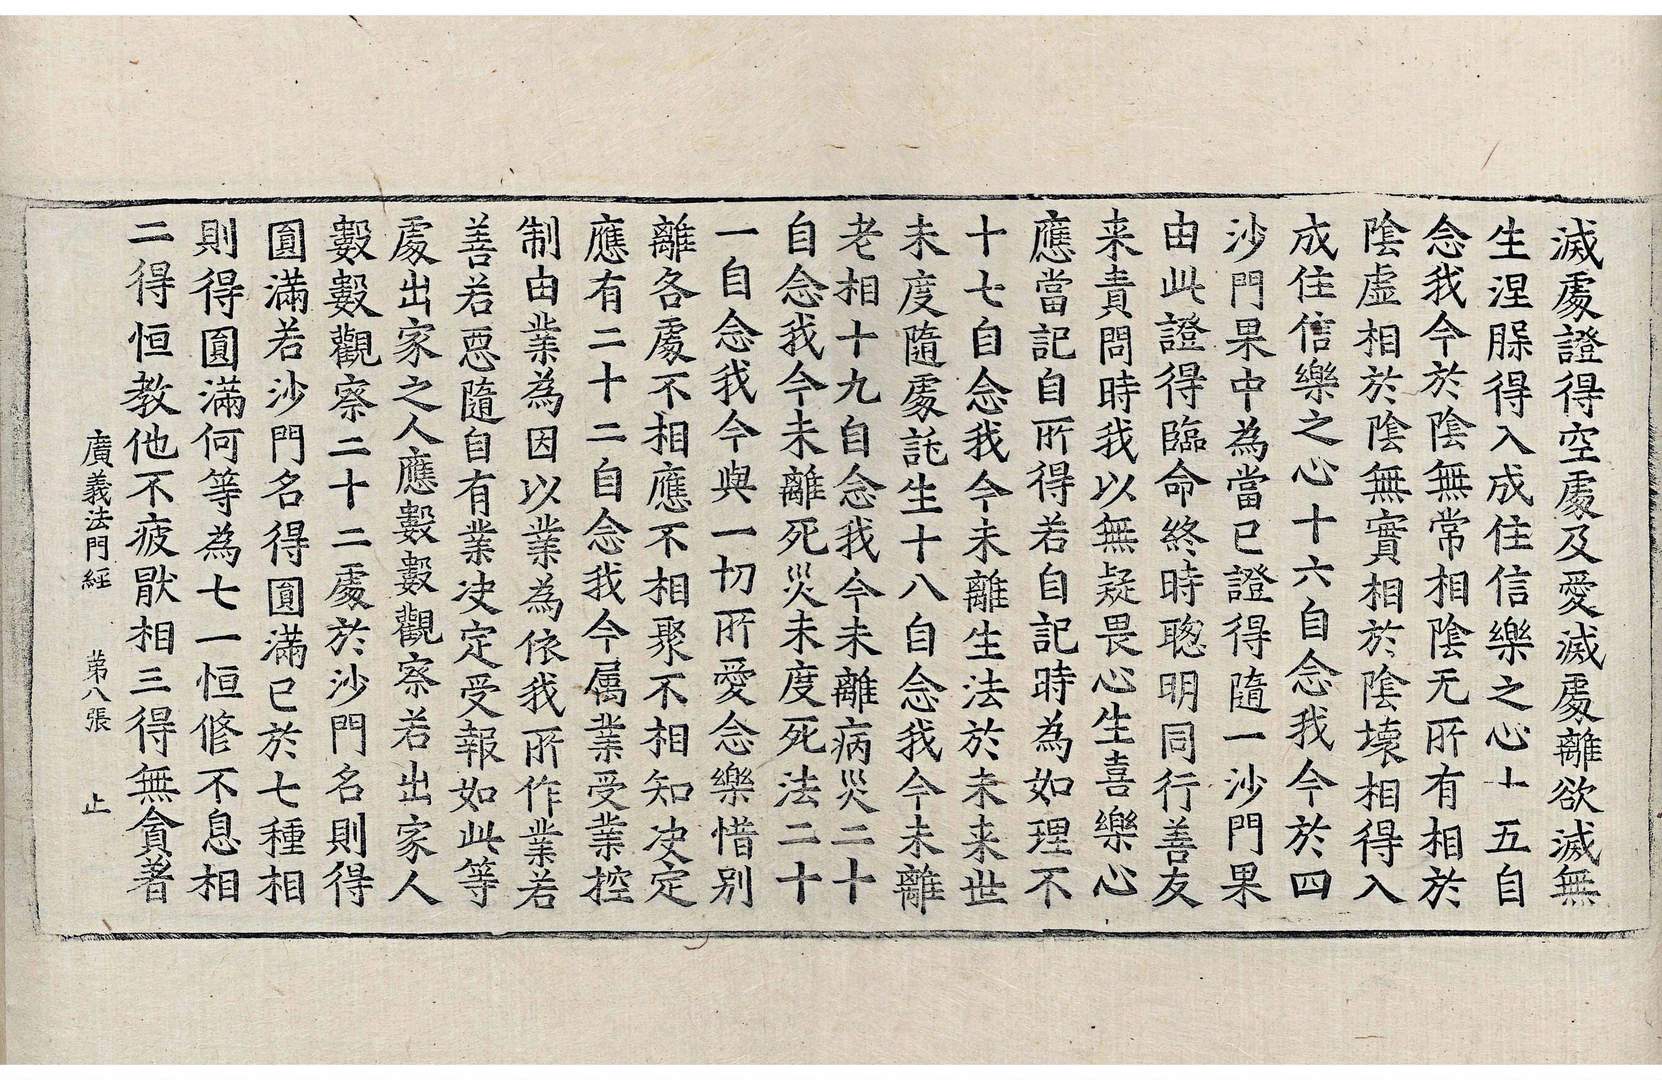 滅處證得空處及愛滅處離欲滅無
生涅脲得入成住信樂之心十五自
念我今於陰無常相陰无所有相於
陰虛相於陰無實相於陰壞相得入
成住信樂之心十六自念我今於四
沙門果中為當已證得隨一沙門果
由此證得臨命終時聦明同行善友
来責問時我以無疑畏心生喜樂心
應當記自所得若自記時為如理不
十七自念我今未離生法於未来世
未度隨處託生十八自念我今未離
老相十九自念我今未離病災二十
自念我今未離死災未度死法二十
一自念我今與一切所愛念樂惜別
離各處不相應不相聚不相知决定
應有二十二自念我今属業受業控
制由業為因以業為依我所作業若
善若惡隨自有業决定受報如此等
處出家之人應數數觀察若出家人
數數觀察二十二處於沙門名則得
圓滿若沙門名得圓滿已於七種相
則得圓滿何等為七一恒修不息相
二得恒教他不疲猒相三得無貪著
廣義法門經 第八張 止